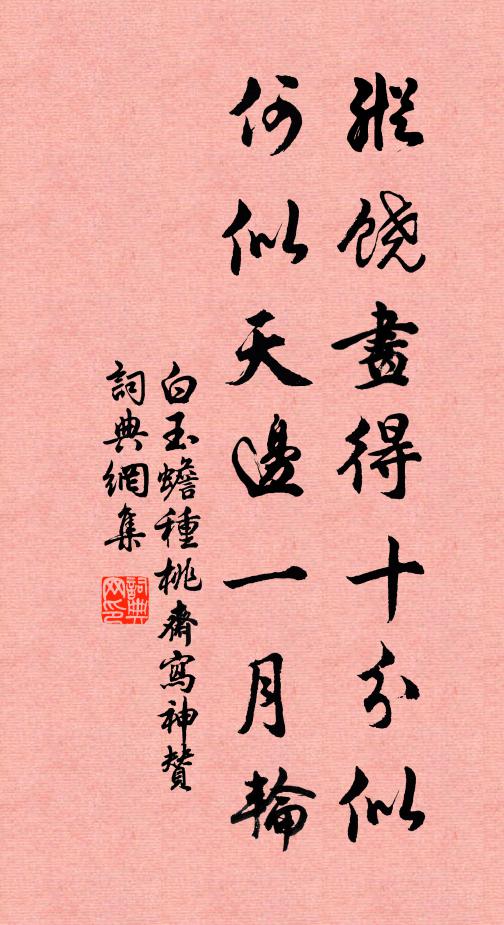 縱饒畫得十分似
何似天邊一月輪
白玉蟾種桃齋寫神贊
詞典網集
詞典網印